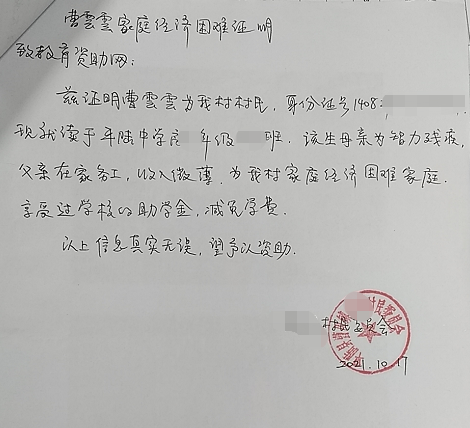 曹雲雲家庭经济困难证明
致教育资助网:
兹证明曹雲雲为我村村民,身份证号1408
现就读于平陆中学高 年级 班. 该生母亲为智力残疾,
父亲在家务工,收入微薄,为我村家庭经济困难家庭.
享受过学校的助学金,减免学费.
以上信息真实无误,望予以资助.
村民委员会
2021.10.17